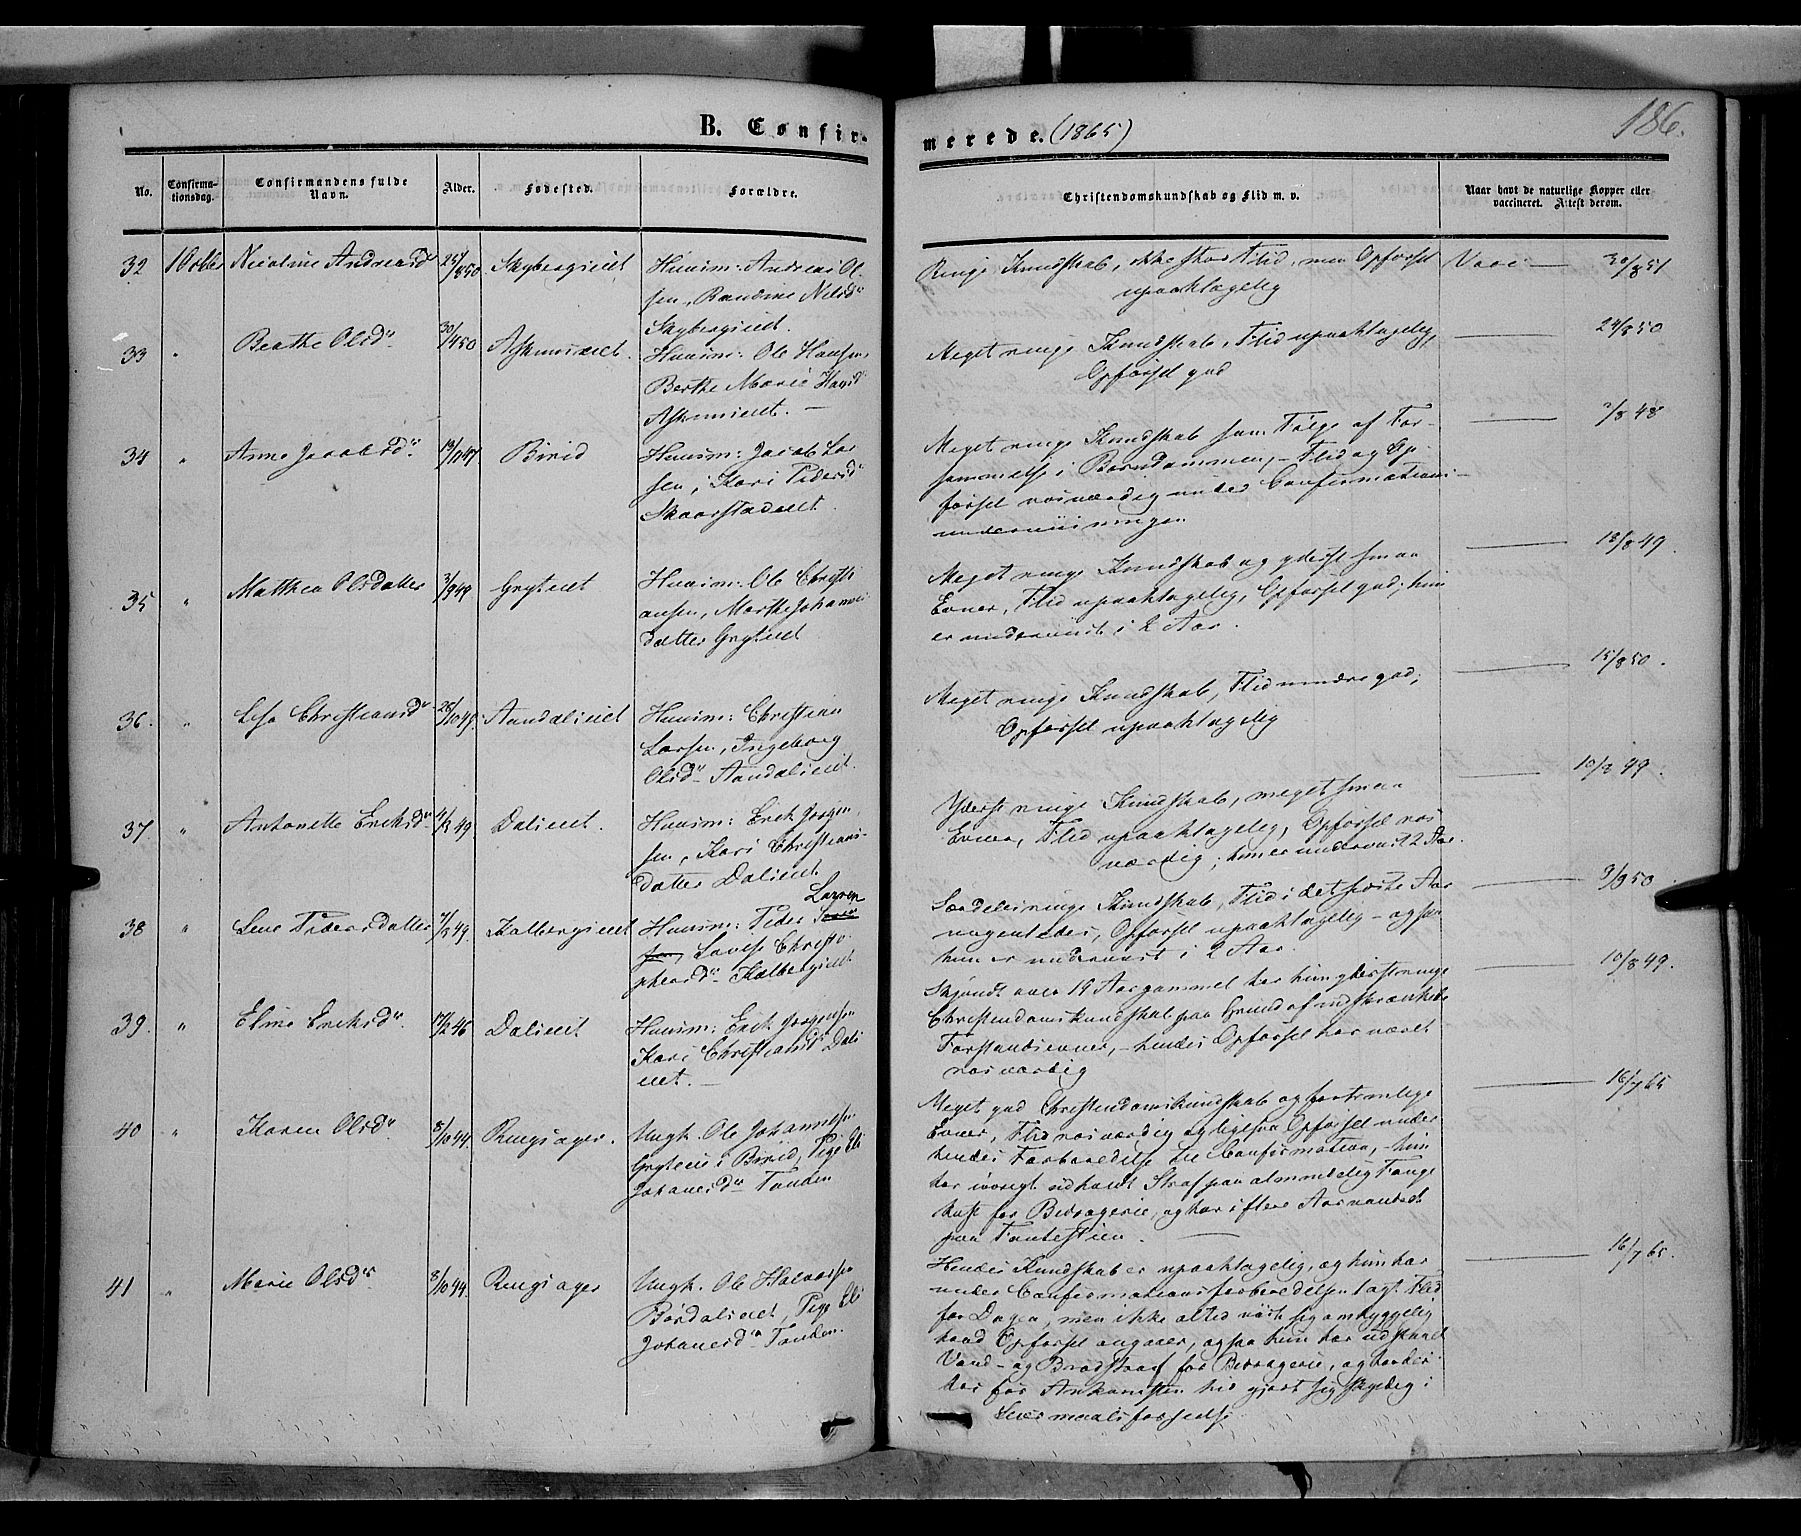 B. Confir-
merede. (1865)
186.
No.
Confirma-
tionsdag.
Confirmandens fulde
Navn.
Alder.
Fødested.
Forældre.
Christendomskundskab og Flid m. v.
Naar havt de naturlige Kopper eller
vaccineret. Attest derom.
32 1 Octbr Nicoline Andreasd. 25/8 50 Skybergeiet Huusm: Andreas Ol
sen, Randine Nilsd.
Skybergeiet.
Ringe Kundskab, ikke stor Flid, men Opførsel
upaaklagelig
Vacc: — 30/8 51
33 " Berthe Olsd. 30/4 50 Huusm: Ole Hansen,
Berthe Marie Hansd.
Meget ringe Kundskab, Flid upaaklagelig,
Opførsel god
— 24/8 50
34 " Anne Jacobsd. Birid Huusm: Jacob Lar
sen, Kari Pedersd.
Skaarstadeiet
Meget ringe Kundskab som Følge af For-
sømmelse i Barndommen, – Flid og Op-
førsel rosværdig under Confirmations-
underviisningen
— 7/8 48
35 " Matthea Olsdatter 3/9 49 Gryteiet Huusm: Ole Christi
ansen, Marthe Johannes
datter Gryteiet
Meget ringe Kundskab og yderst smaa
Evner, Flid upaaklagelig, Opførsel god; hun
er underviist i 2 Aar.
— 18/8 49.
36. " Lisa Christiansd. Aandalseiet Huusm: Christian
Larsen, Ingeborg
Olsd. Aandalseiet.
Meget ringe Kundskab, Flid mindre god;
Opførsel upaaklagelig
— 15/8 50.
37 " Antonette Eriksd. 4/3 49 Dalseiet. Huusm: Erik Jørgen
sen, Kari Christians
datter Dalseiet
Yderst ringe Kundskab, meget smaa
Evner, Flid upaaklagelig, Opførsel ros
værdig; hun er underviist 2 Aar.
— 10/8 49.
38 " Lene Pedersdatter 7/3 49. Kalbergeiet Huusm: Peder Larsen
Lovise Christo
phersd. Kalbergeiet
Særdeles ringe Kundskab, Flid i det første Aar
nogenledes, Opførsel upaaklagelig – ogsaa
hun er underviist i 2 Aar.
— 9/9 50.
39. " Eline Eriksd. 17/2 46 Dalseiet Huusm: Erik Jørgensen
Kari Christiansd. Dals
eiet. —
Skjøndt over 19 Aar gammel har hun yderst ringe
Christendomskundskab paa Grund af indskrænkede
Forstandsevner, – hendes Opførsel har været
rosværdig
— 10/8 49.
40 " Karen Olsd. 8/10 44. Ringsager. Ungk. Ole Johannesen
Gryteiet i Birid, Pige Eli
Johanesd. Tanden
Meget god Christendomskundskab og fortrinlige
Evner, Flid rosværdig og ligesaa Opførsel under
hendes Forberedelse til Confirmation, – hun
har iøvrigt udholdt Straf paa almindelig Fange
kost for Bedragerie, og har i flere Aar vanket
paa Fantestien. —
— 16/7 65
41 " Marie Olsd. 8/10 44. Ringsager Ungk. Ole Halvorsen
Børdalseiet, Pige Eli
Johanesd. Tanden.
Hendes Kundskab er upaaklagelig, og hun har
under Confirmationsforberedelsen lagt Flid
for Dagen, men ikke altid viist sig omhyggelig
hvad Opførsel angaaer, ogsaa hun har udstaaet
Vand- og Brødstraf for Bedragerie, og desuden
har før Ankomsten hid gjort sig skyldig i
Leiermaalsforseelse.
— 16/7 65.